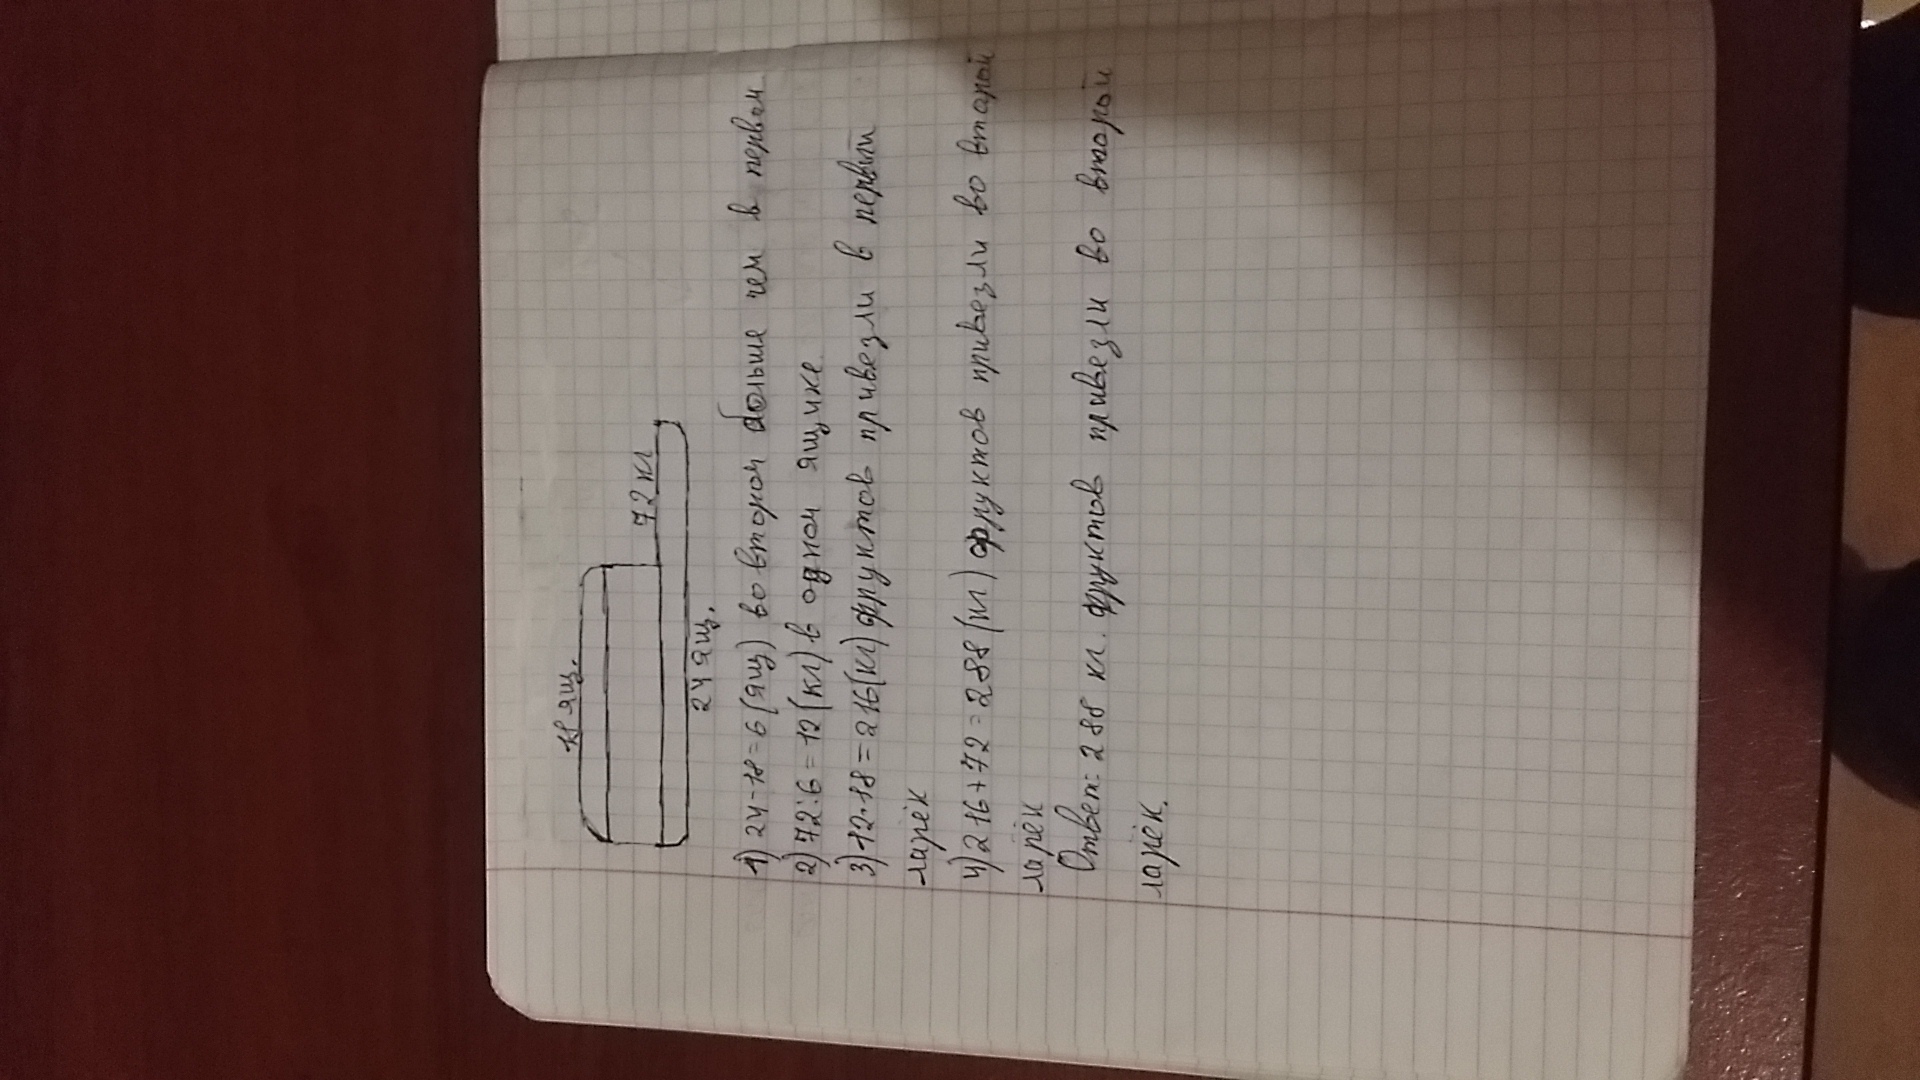 18 ящ.
72 кг
24 ящ.
1) 24-18=6(ящ) во втором больше чем в первом
2) 72:6=12(кг) в одном ящике
3) 12·18=216(кг) фруктов привезли в первый
ларёк
4) 216+72=288(кг) фруктов привезли во второй
ларёк
Ответ: 288 кг. фруктов привезли во второй
ларёк.